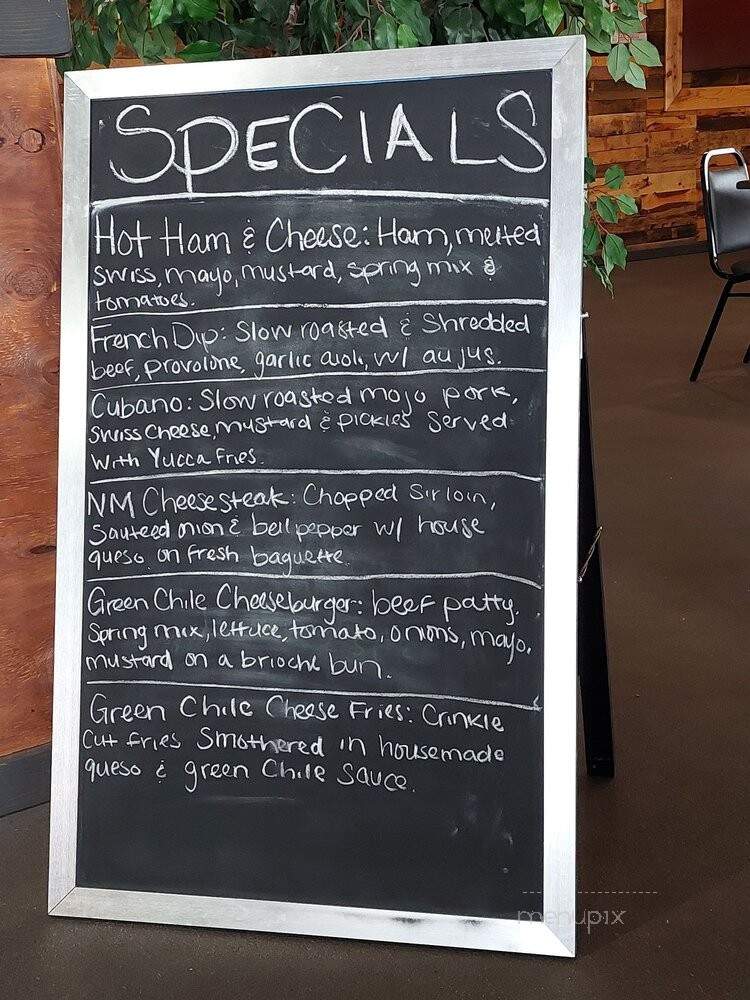 SPECIALS
Hot Ham & Cheese: Ham, melted
swiss, mayo, mustard, spring mix &
tomatoes.
French Dip: Slow roasted & Shredded
beef, provolone, garlic aioli, w/ au jus.
Cubano: Slow roasted mojo pork,
Swiss Cheese, mustard & pickles Served
With Yucca Fries.
NM Cheesesteak: Chopped Sirloin,
Sauteed onion & bell pepper w/ house
queso on fresh baguette.
Green Chile Cheeseburger: beef patty,
Spring mix, lettuce, tomato, onions, mayo,
mustard on a brioche bun.
Green Chile Cheese Fries: Crinkle
Cut fries Smothered in housemade
queso & green Chile Sauce.
menupix